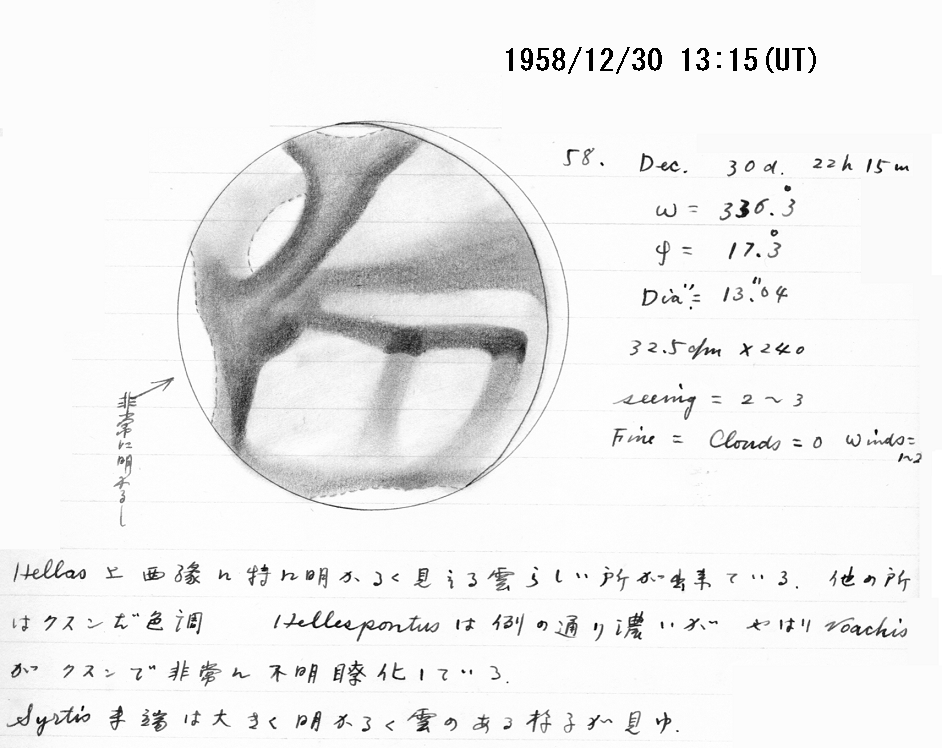 1958/12/30 13:15(UT)
58. Dec. 30d. 22h 15m
ω = 336.°3
φ = 17.°3
Dia. = 13."04
32.5cm × 240
seeing = 2 ~ 3
Fine = Clouds = 0 Winds=
1~2
非常に明かるし
Hellas と西縁に特に明かるく見える雲らしい所が出来ている. 他の所
はクスンだ色調 Hellespontus は例の通り濃いが やはり Noachis
がクスンで非常に不明瞭化している.
Syrtis 末端は大きく明かるく雲のある様子が見ゆ.